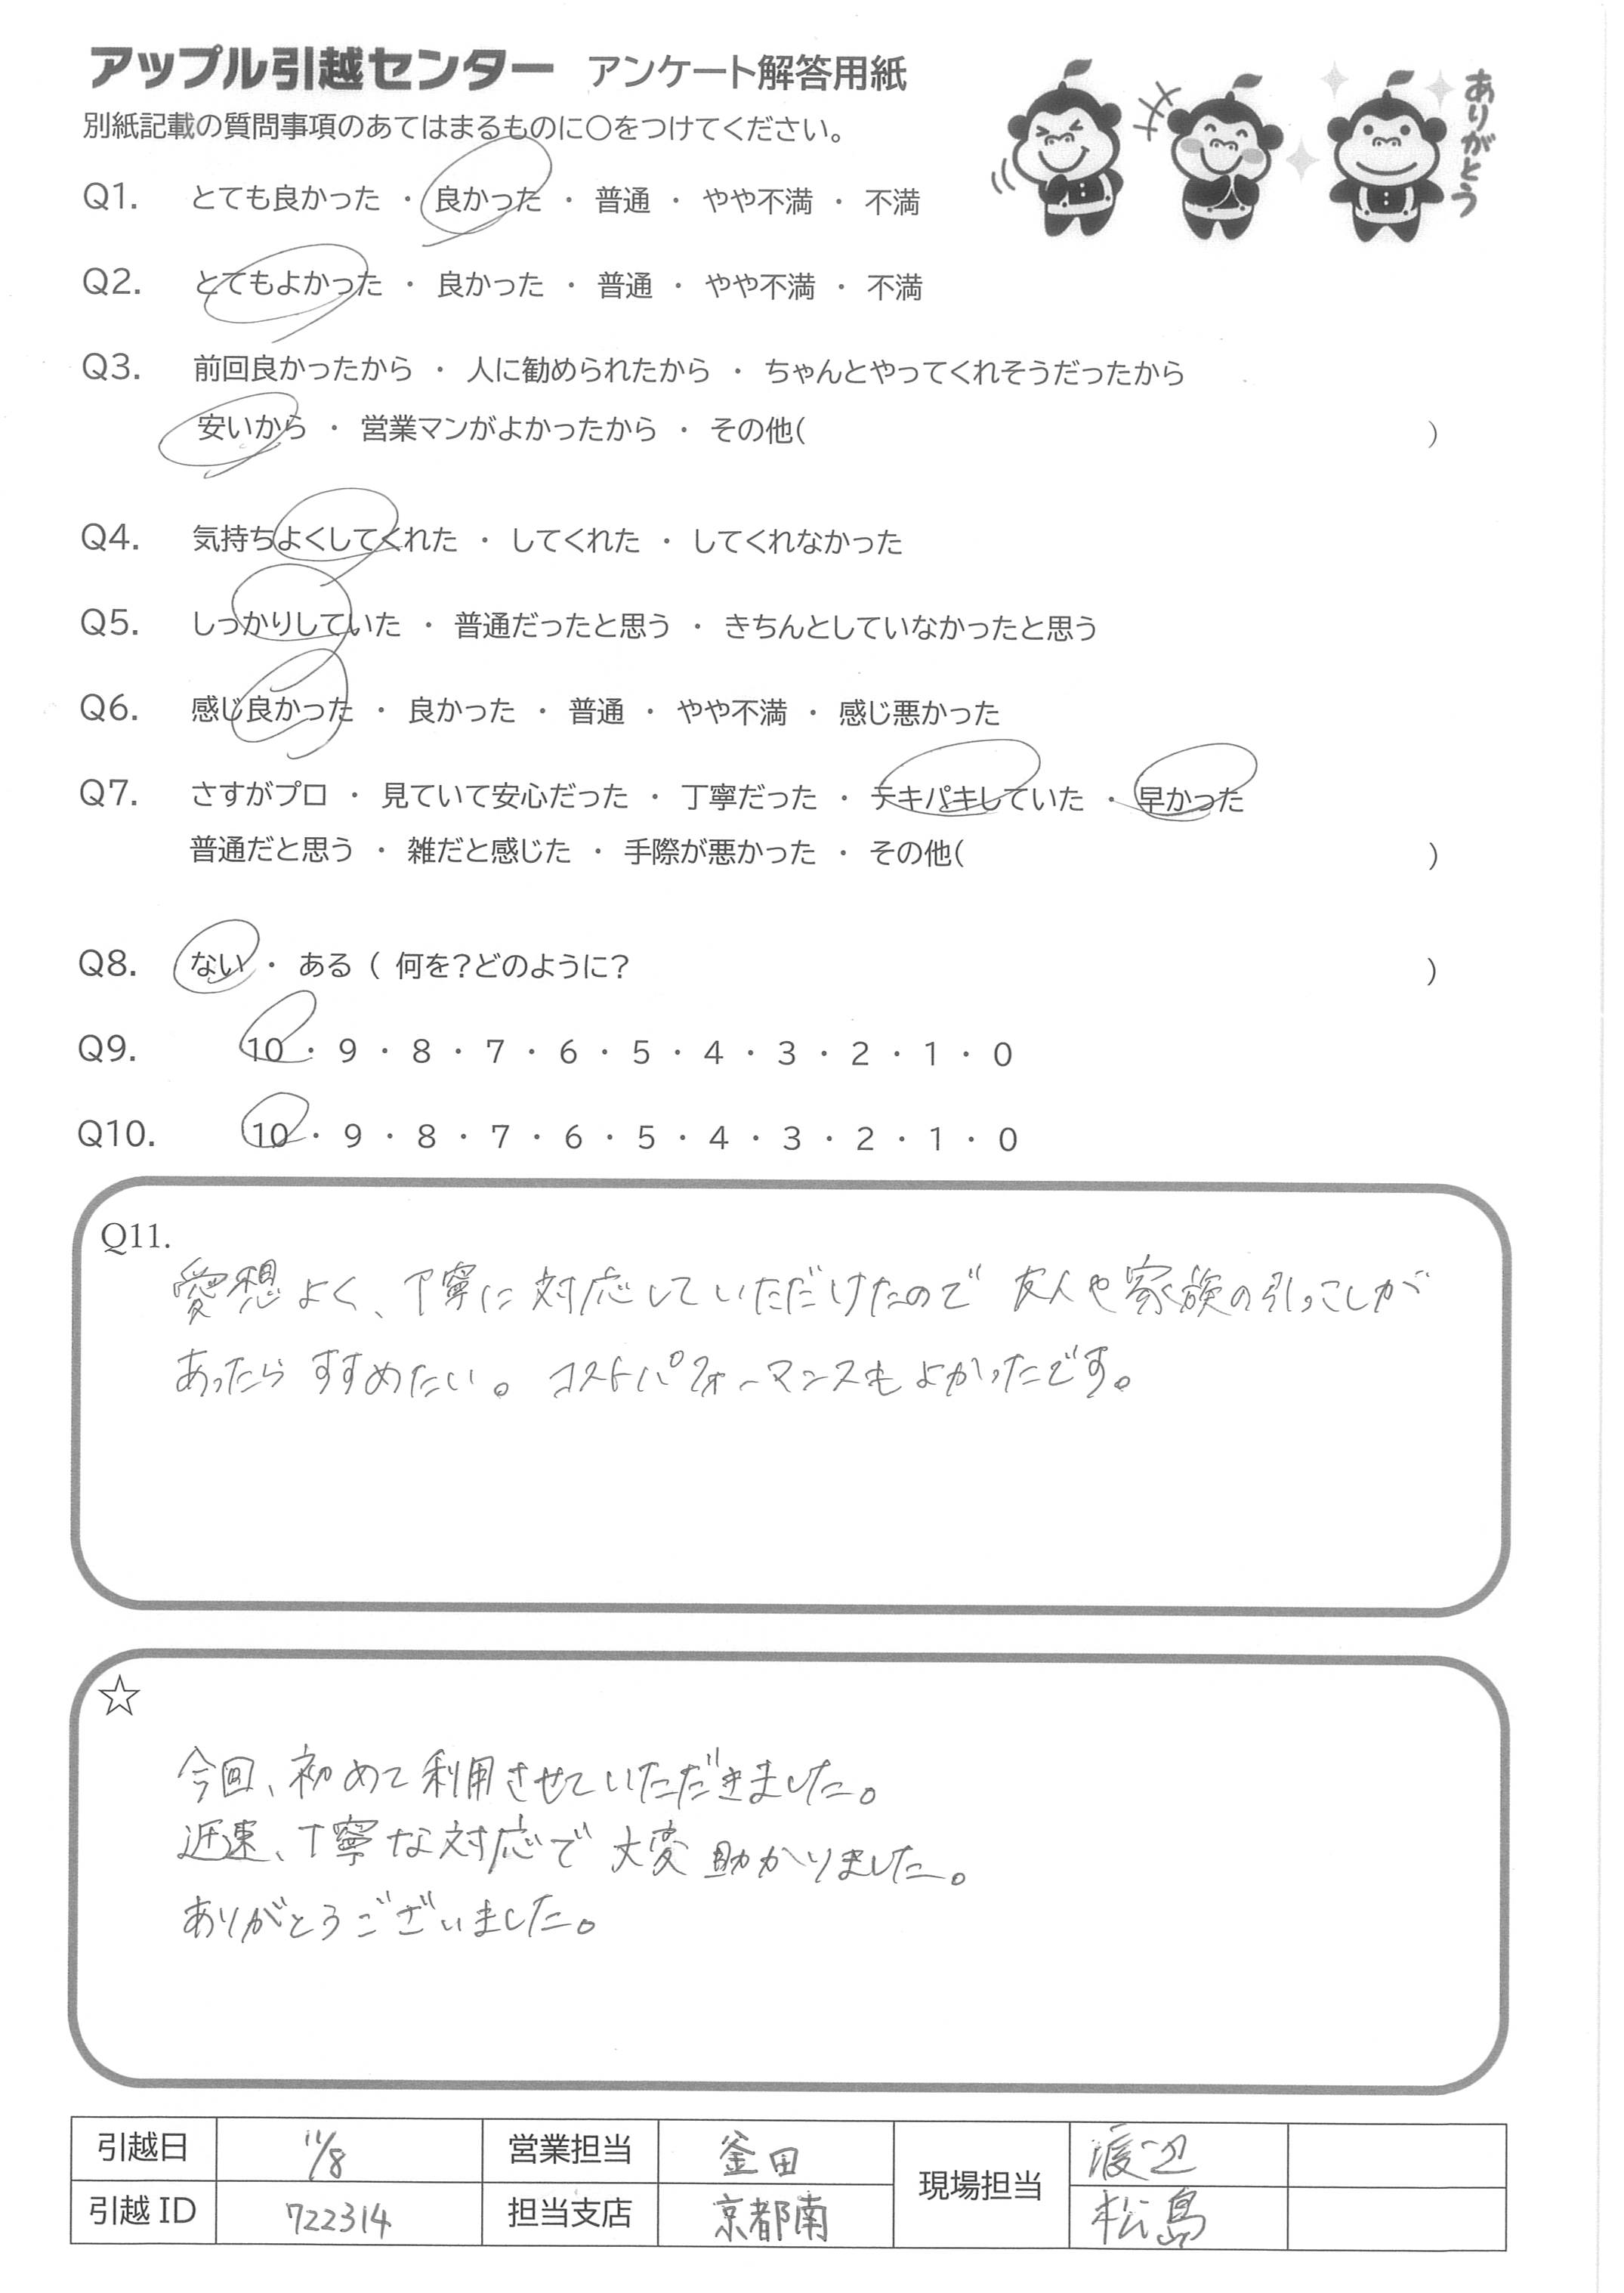 アップル引越センター アンケート解答用紙
ありがとう
別紙記載の質問事項のあてはまるものに○をつけてください。
Q1. とても良かった ・ 良かった ・ 普通 ・ やや不満 ・ 不満
Q2. とてもよかった ・ 良かった ・ 普通 ・ やや不満 ・ 不満
Q3. 前回良かったから ・ 人に勧められたから ・ ちゃんとやってくれそうだったから
安いから ・ 営業マンがよかったから ・ その他( )
Q4. 気持ちよくしてくれた ・ してくれた ・ してくれなかった
Q5. しっかりしていた ・ 普通だったと思う ・ きちんとしていなかったと思う
Q6. 感じ良かった ・ 良かった ・ 普通 ・ やや不満 ・ 感じ悪かった
Q7. さすがプロ ・ 見ていて安心だった ・ 丁寧だった ・ テキパキしていた ・ 早かった
普通だと思う ・ 雑だと感じた ・ 手際が悪かった ・ その他( )
Q8. ない ・ ある ( 何を?どのように? )
Q9. 10 ・ 9 ・ 8 ・ 7 ・ 6 ・ 5 ・ 4 ・ 3 ・ 2 ・ 1 ・ 0
Q10. 10 ・ 9 ・ 8 ・ 7 ・ 6 ・ 5 ・ 4 ・ 3 ・ 2 ・ 1 ・ 0
Q11.
愛想よく、丁寧に対応していただけたので 友人や家族の引っこしが
あったら すすめたい。コストパフォーマンスもよかったです。
☆
今回、初めて利用させていただきました。
迅速、丁寧な対応で 大変 助かりました。
ありがとうございました。
引越日 11/8 営業担当 釜田 現場担当 渡辺
引越 ID 722314 担当支店 京都南 松島